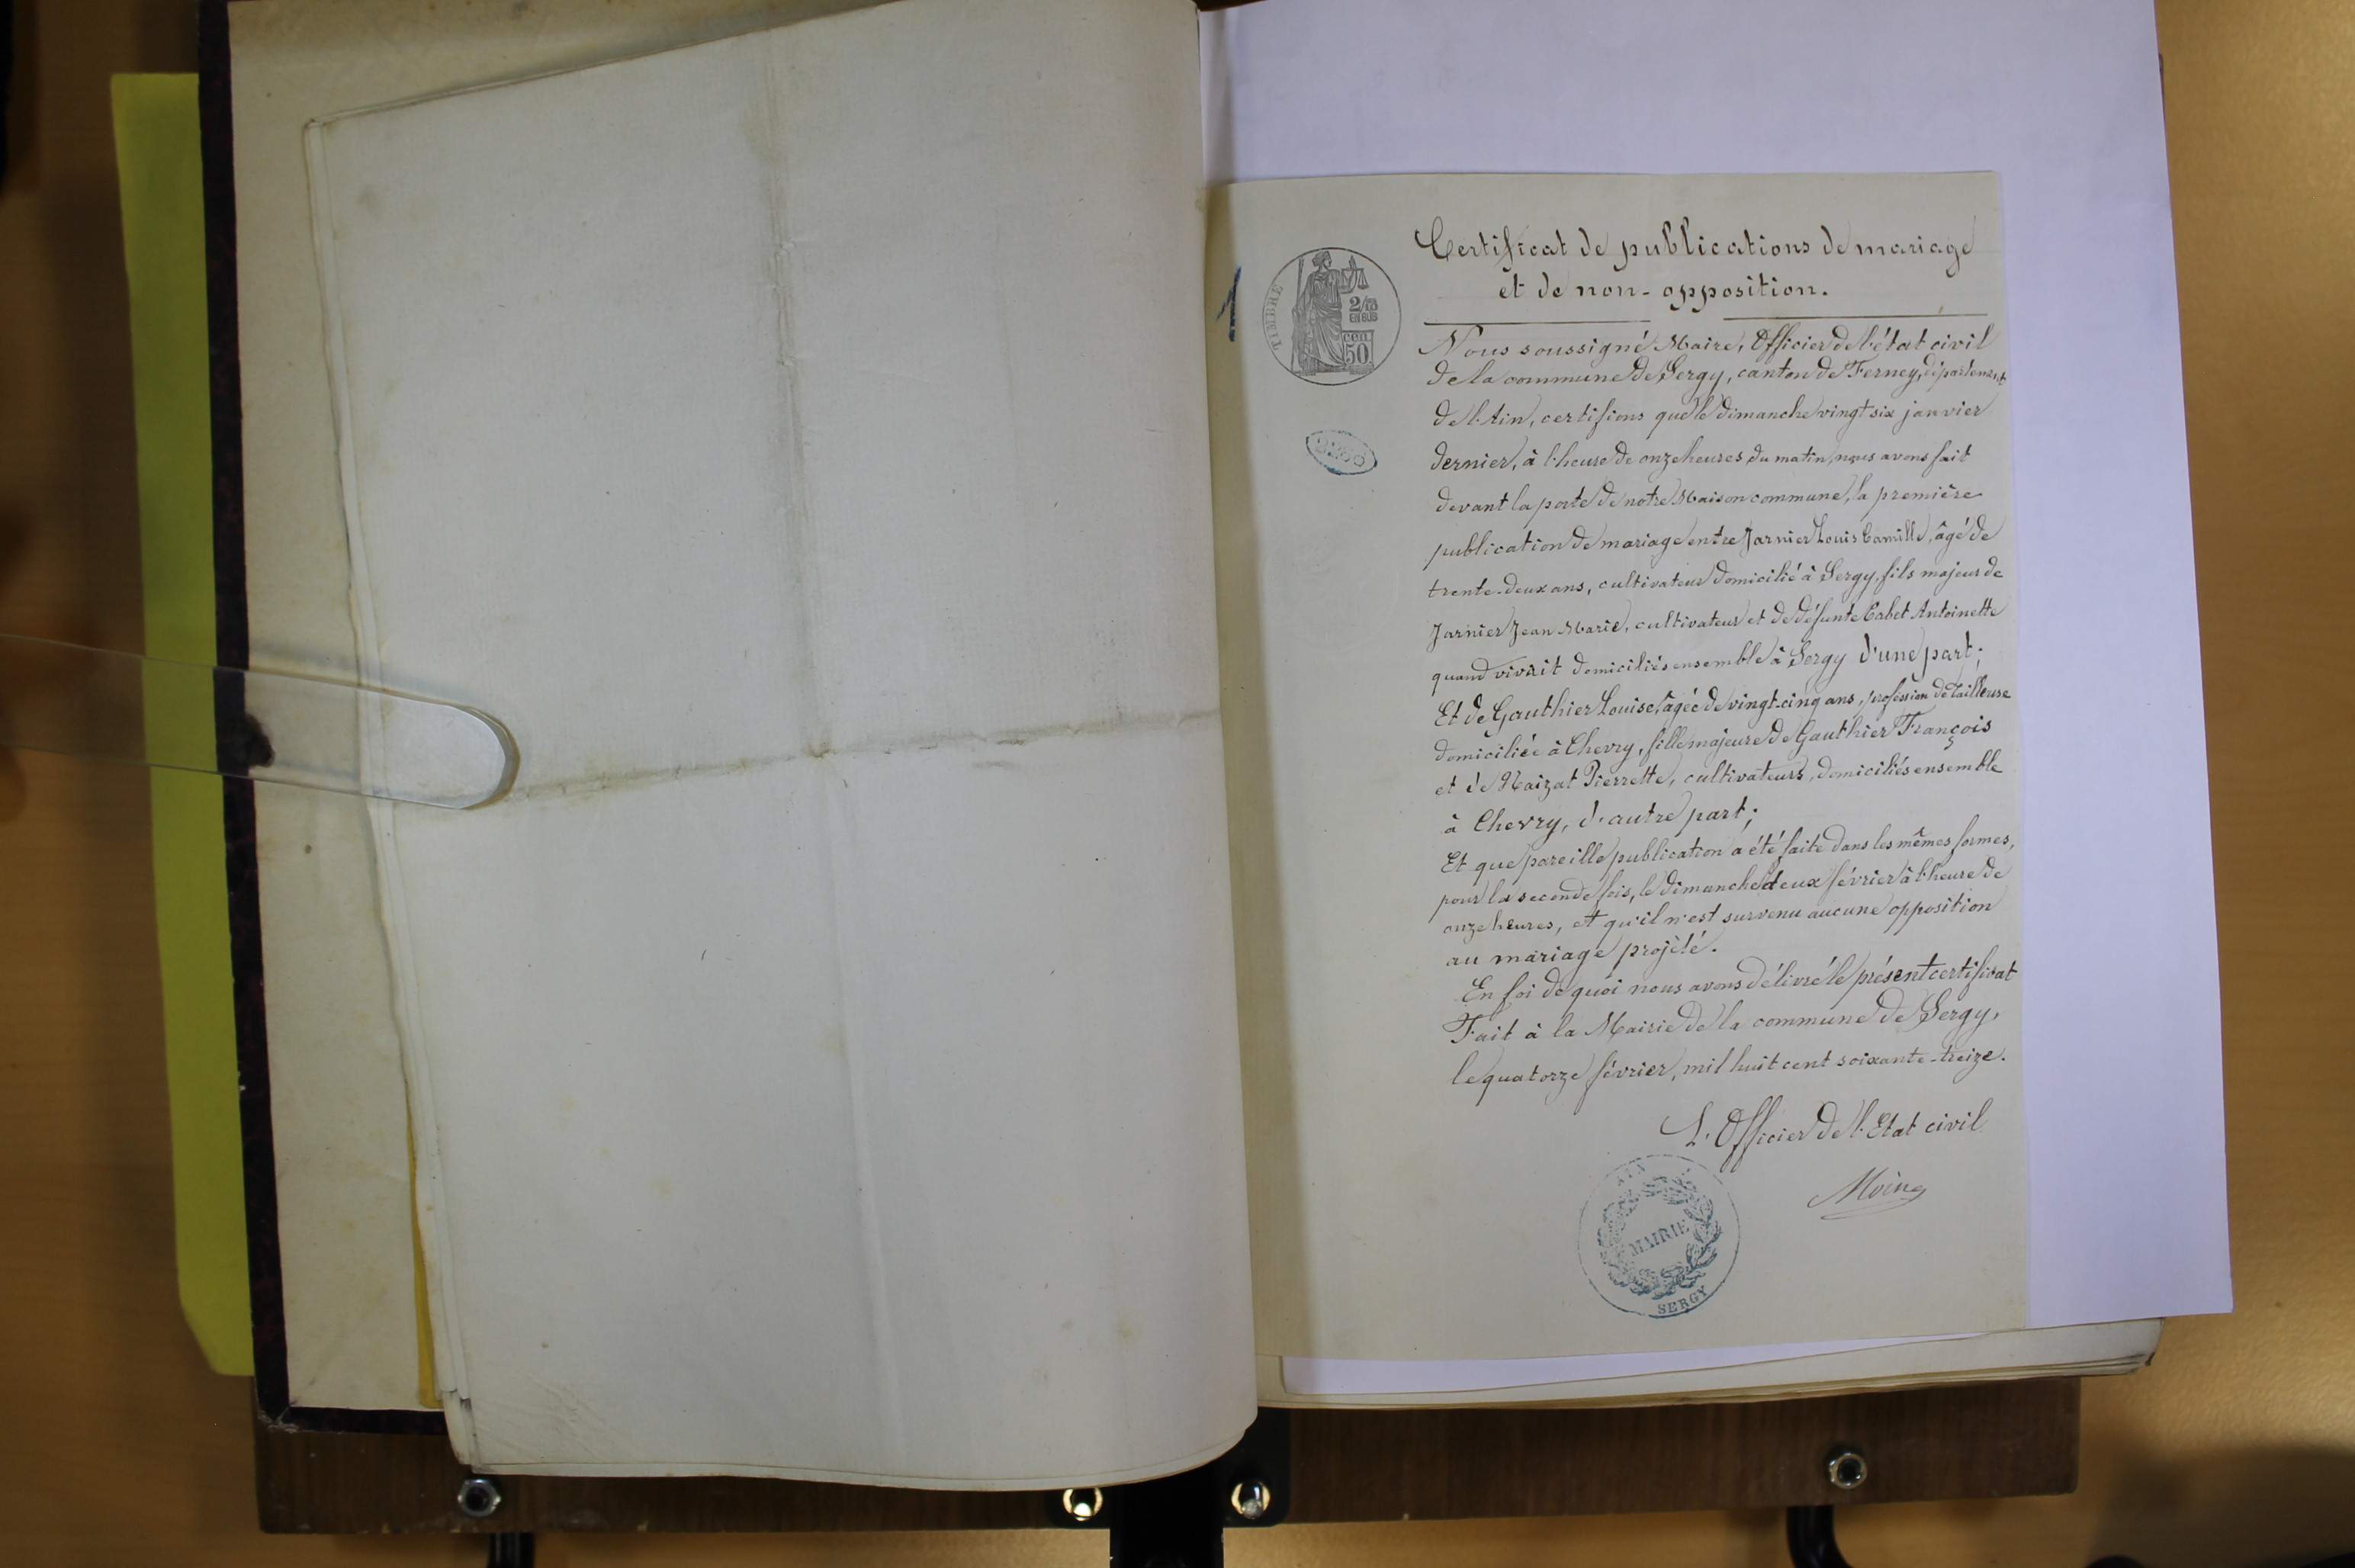 Certificat de publications de mariage
et de non-opposition.
1
TIMBRE
2/10
EN SUS
50
Nous soussigné Maire, Officier de l'état civil
de la commune de Sergy, canton de Ferney, département
de l'Ain, certifions que le dimanche vingt six janvier
dernier, à l'heure de onze heures du matin, nous avons fait
devant la porte de notre Maison commune, la première
publication de mariage entre Jarnier Louis Camille, âgé de
trente-deux ans, cultivateur domicilié à Sergy, fils majeur de
Jarnier Jean Marie, cultivateur et de défunte Cabet Antoinette
quand vivait domiciliés ensemble à Sergy d'une part;
Et de Gauthier Louise, âgée de vingt-cinq ans, profession de tailleuse
domiciliée à Chevry, fille majeure de Gauthier François
et de Naizat Pierrette, cultivateurs, domiciliés ensemble
à Chevry, d'autre part;
Et que pareille publication a été faite dans les mêmes formes,
pour la seconde fois, le dimanche deux février à l'heure de
onze heures, et qu'il n'est survenu aucune opposition
au mariage projeté.
En foi de quoi nous avons délivré le présent certificat
Fait à la Mairie de la commune de Sergy,
le quatorze février, mil huit cent soixante-treize.
L'Officier de l'Etat civil
Moine
AIN
MAIRIE
SERGY